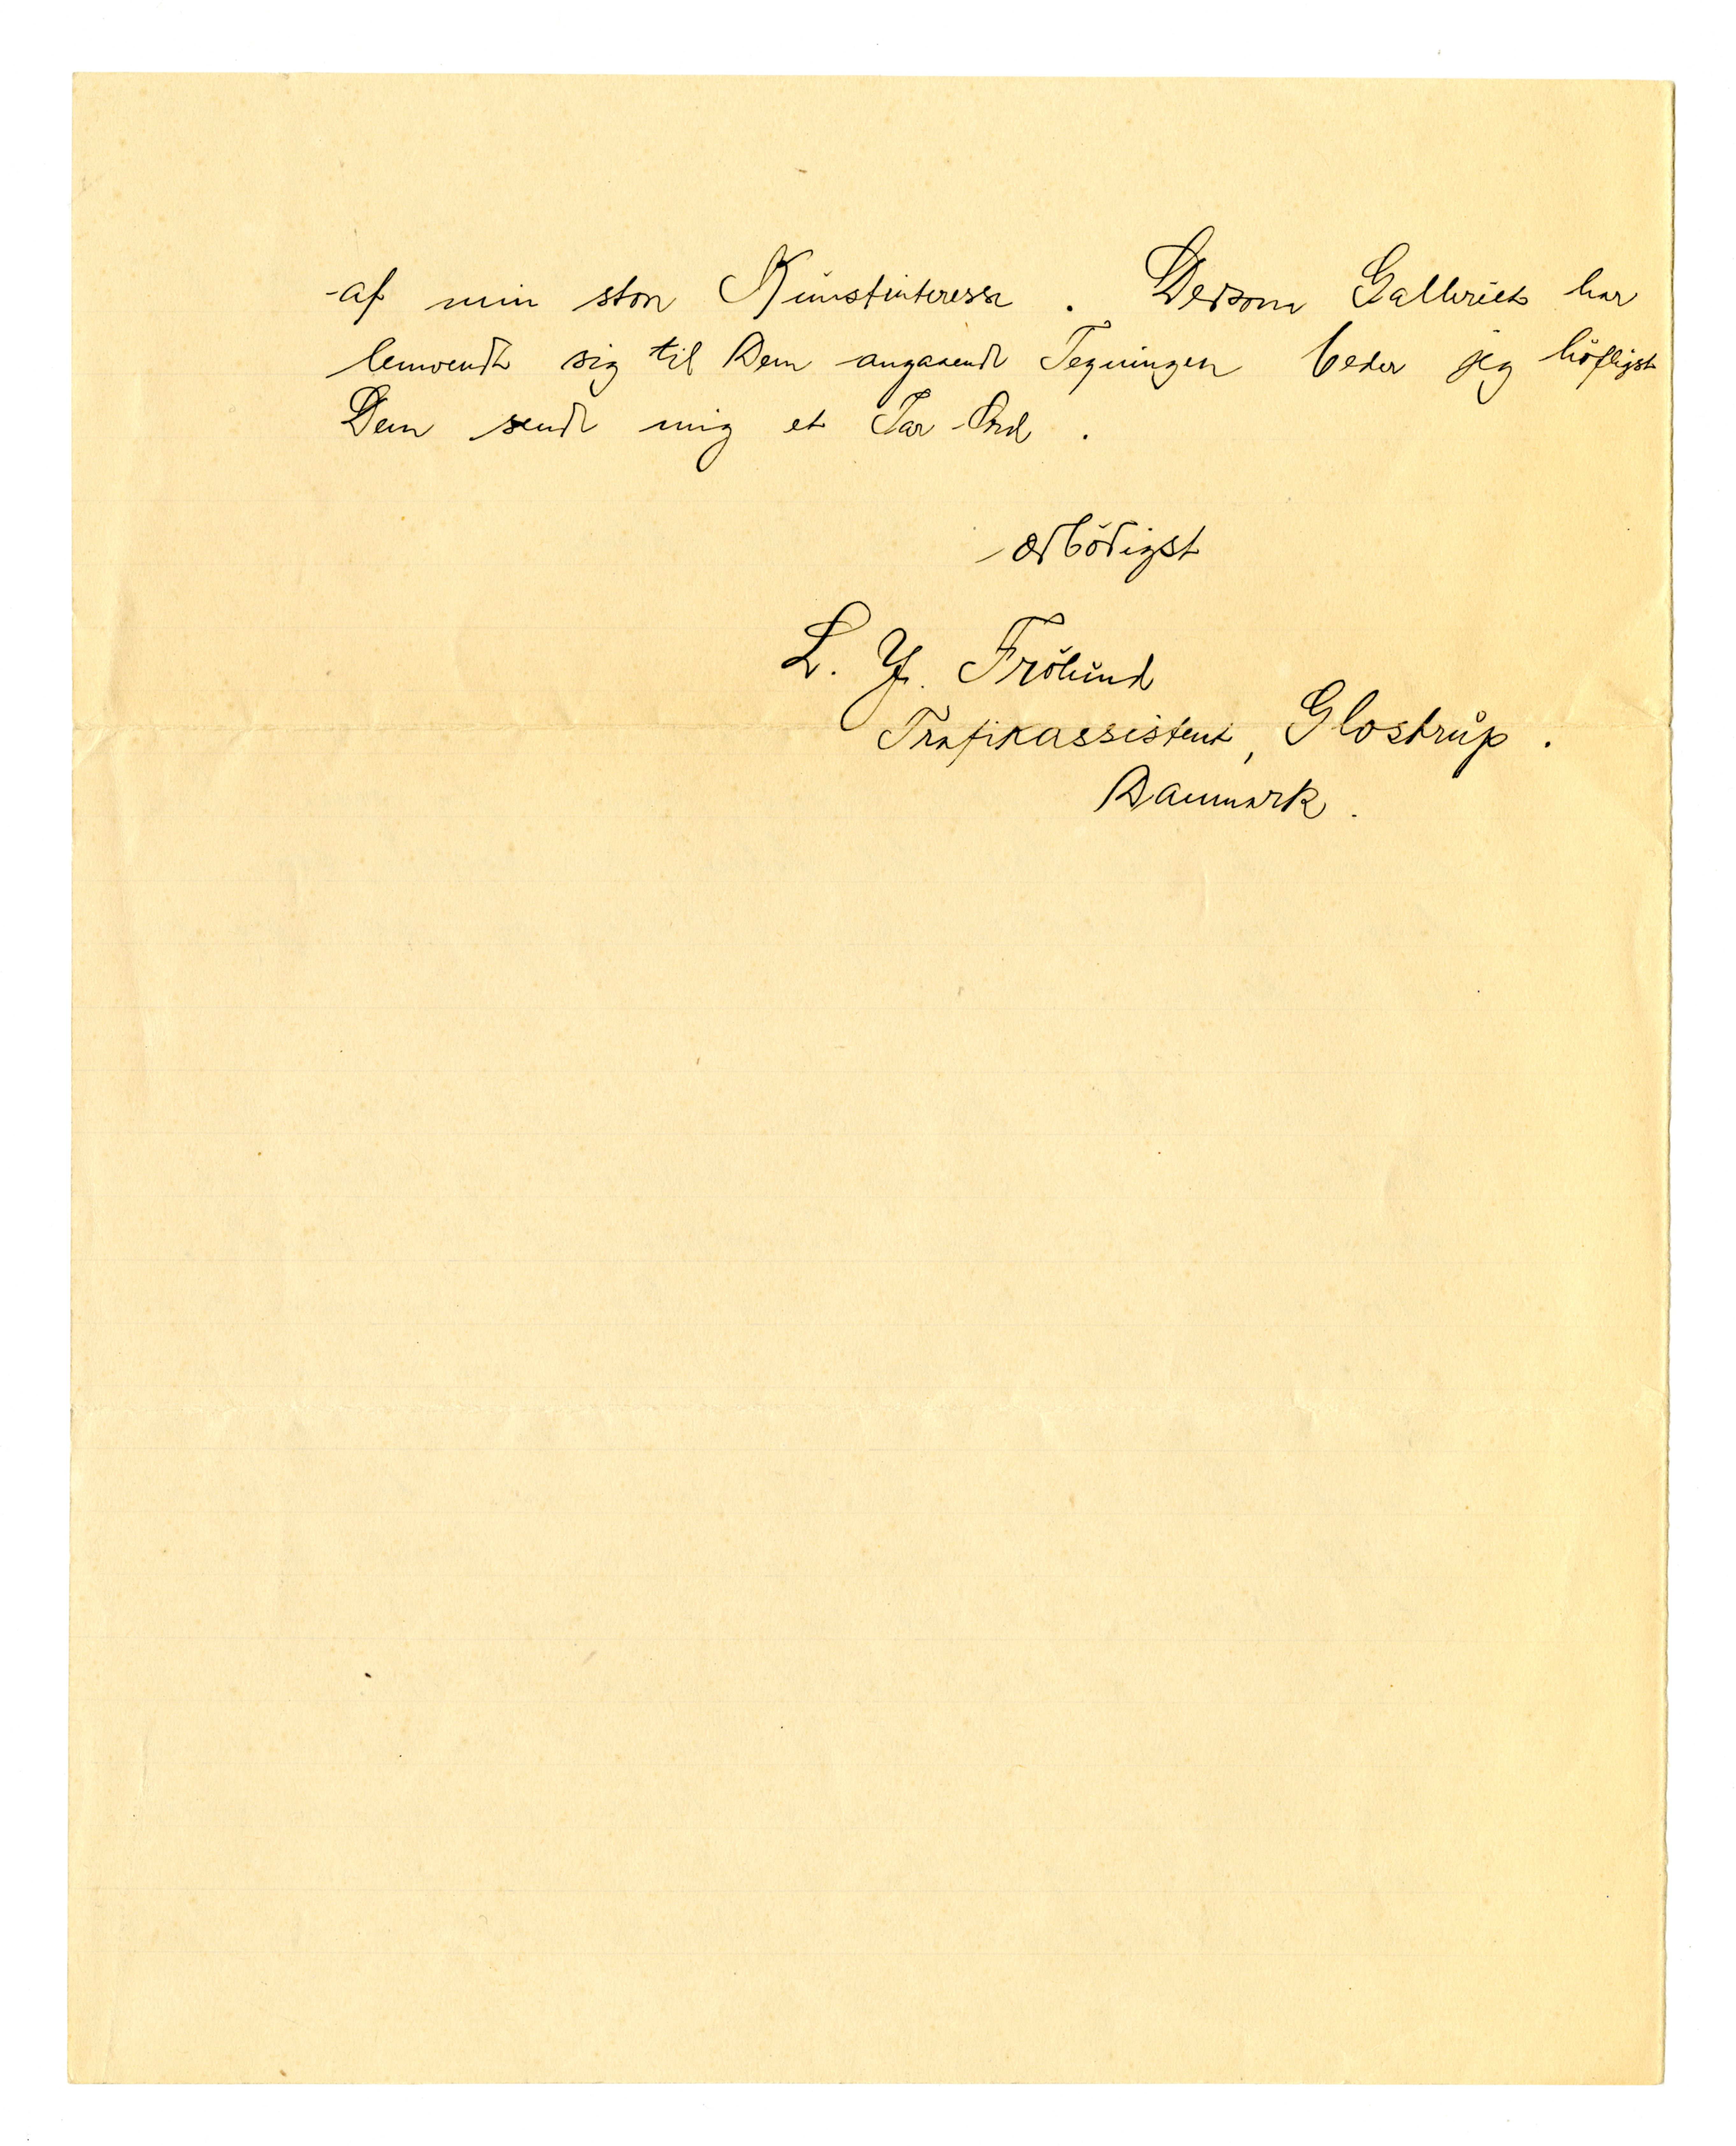 af min store Kunstinteresse. Dersom Galleriet har
henvendt sig til Dem angaaende Tegningen beder jeg höfligst
Dem sende mig et Par Ord.
ærbödigst
L. Y. Frölund
Trafikassistent, Glostrup.
Danmark.